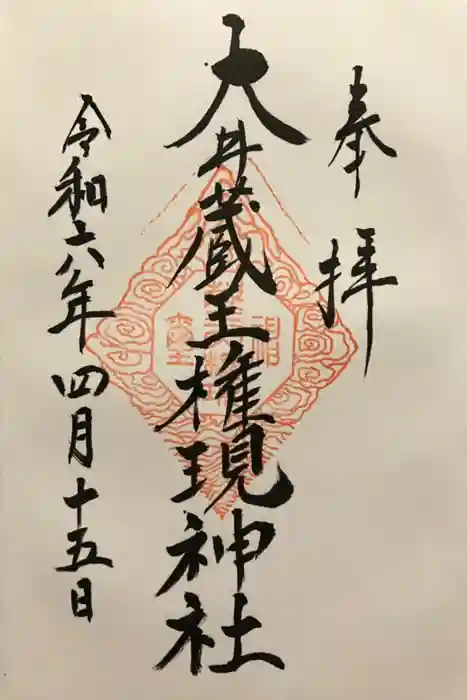 奉拝
大井蔵王権現神社
令和六年四月十五日